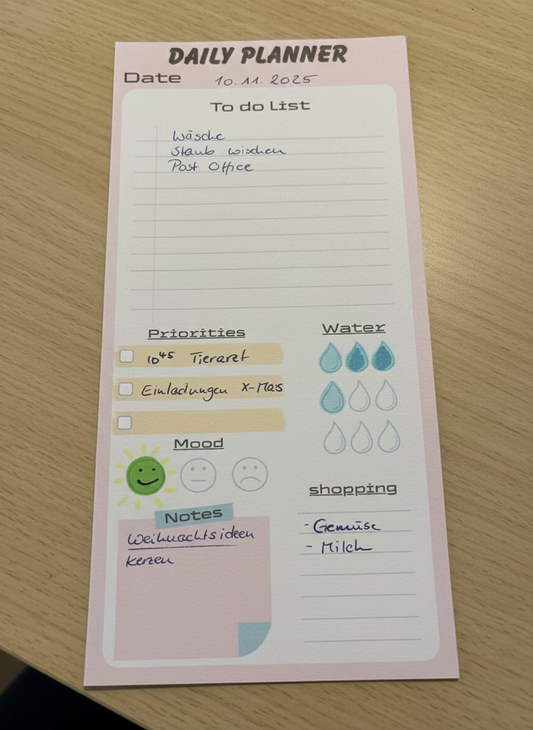 DAILY PLANNER
Date 10.11.2025
To do List
Wäsche
Staub wischen
Post Office
Priorities
10⁴⁵ Tierarzt
Einladungen X-Mas
Water
Mood
Notes
Weihnachtsideen
Kerzen
shopping
- Gemüse
- Milch